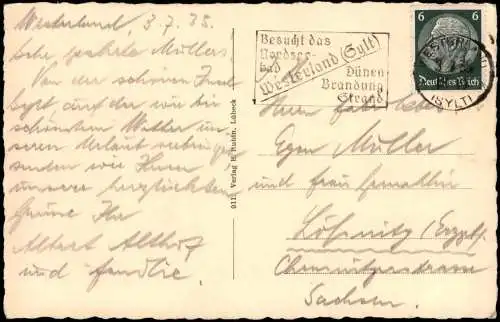 Westerland, 3.7.35.
Sehr geehrte Müllers
Von der schönen Insel
Sylt auf der wir bei
schönstem Wetter un-
seren Urlaub verbringen
senden wir Ihnen
unsere herzlichsten
Grüsse Ihr
Albert Althof
und Familie.
9112 Verlag H. Rubin, Lübeck
Besucht das
Nordsee-
bad
Westerland (Sylt)
Dünen
Brandung
Strand
6 6
Deutsches Reich
(SYLT)
Herrn
Egon Müller
und Frau Gemahlin
Lößnitz/Erzgb.
Chemnitzerstrasse
Sachsen.